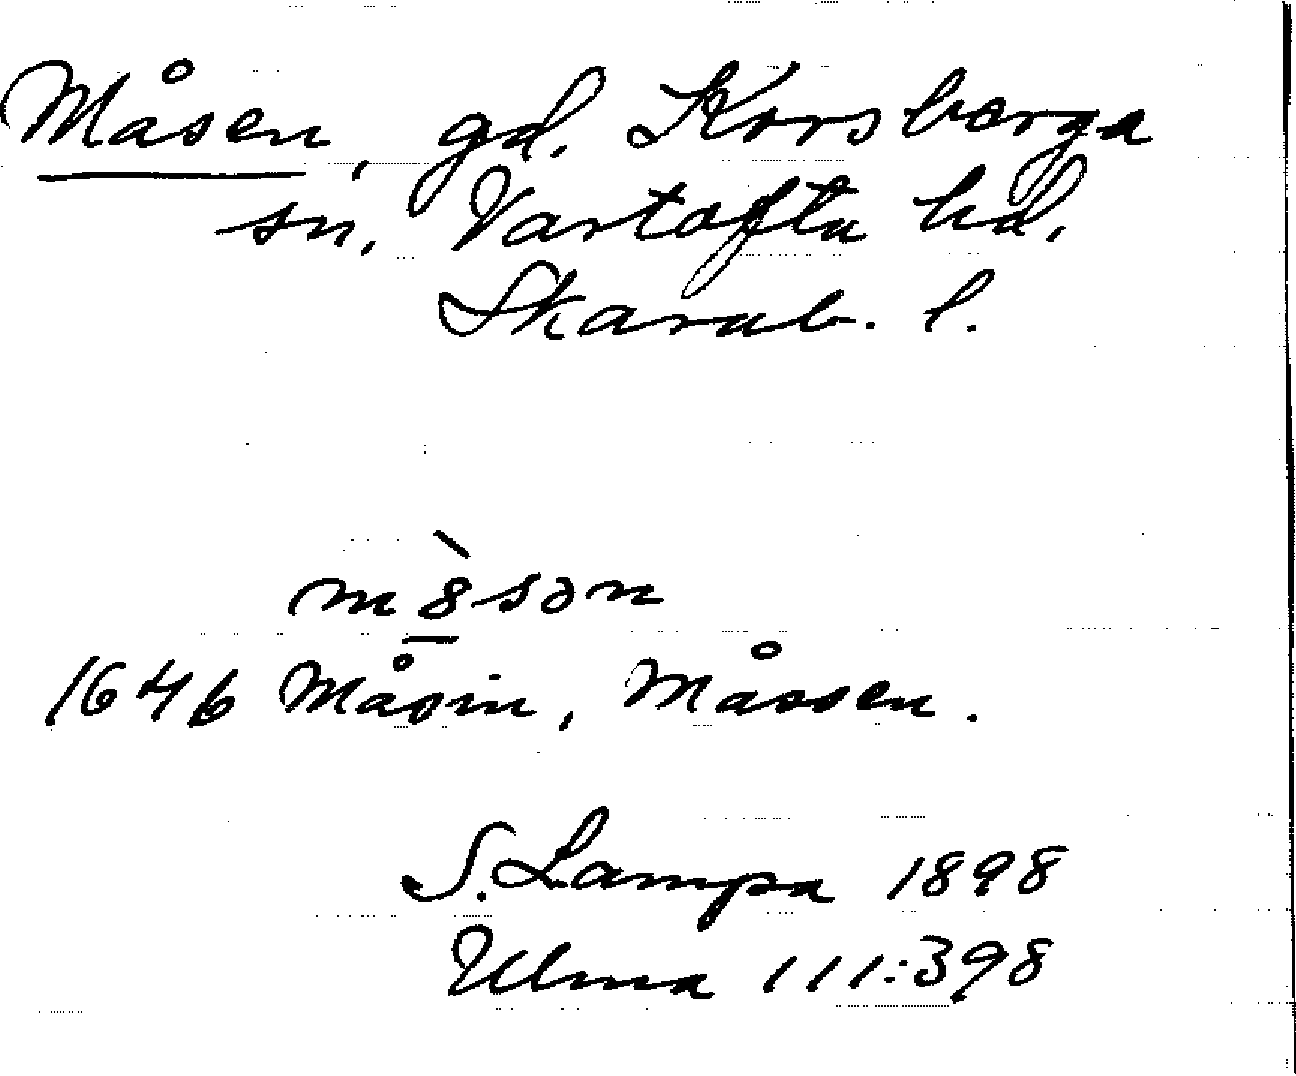 Måsen, gd. Korsberga
sn, Vartofta hd,
Skarab. l.
m8̲̀sən
1646 Måsin, Måssen.
S. Lampa 1898
Ulma 111:398